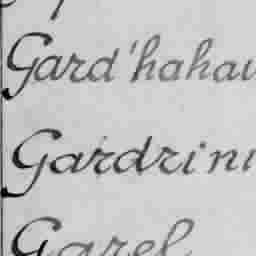 Gard'hahau
Gardrini
Garel